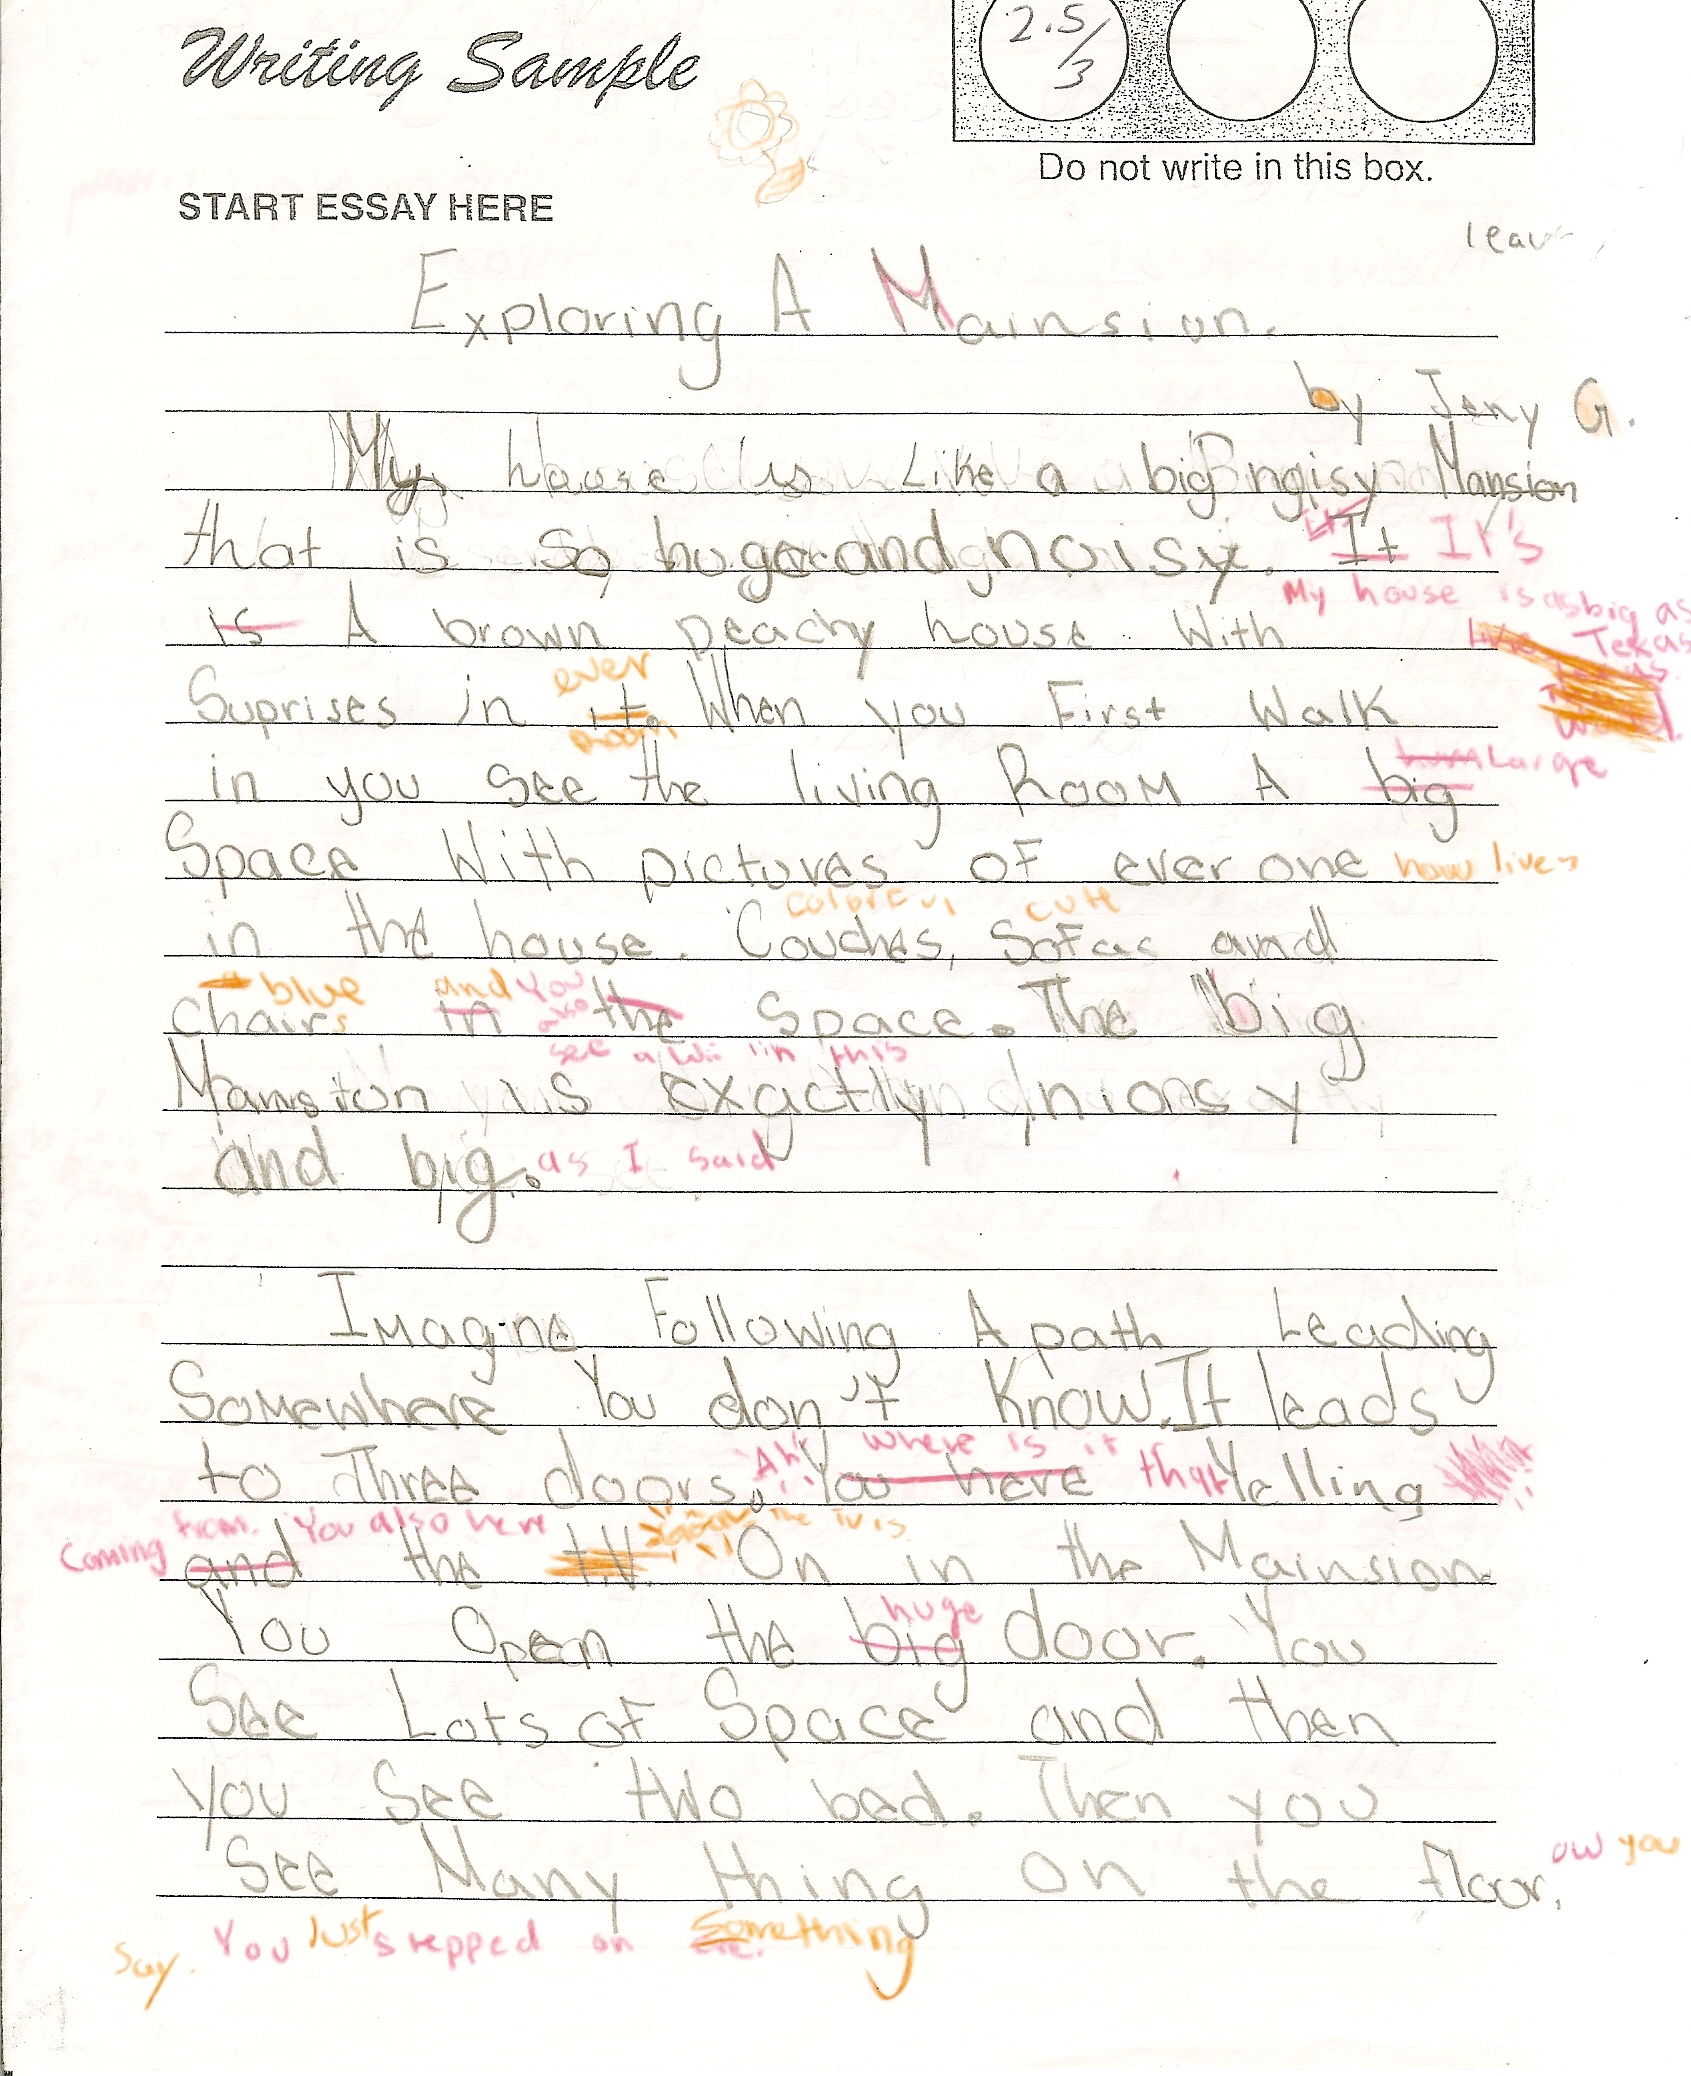 Writing Sample
2.5/3
Do not write in this box.
START ESSAY HERE
leav
Exploring A Mainsion.
by Jeny G.
My house is Like a big noisy Mansion
that is so huge and noisy. It It's
is A brown peachy house With
My house is as big as
Texas
Suprises in it. ever room When you First Walk
in you see the living Room A big Large
Space With pictures of ever one how lives
in the house. Couches, colorful cute Sofas and
a blue
chairs in and the You also space. The big
see a Wii in this
Mansion is exactly niosy
and big. as I said
Imagine Following A path Leading
Somewhere You don't Know. It leads
to Three doors. "Ah" where is it You here that Yelling
Coming from. You also here
and the t.v. the tv is On in the Mainsion.
You Open the big huge door. You
See Lots of Space and then
you See two bed. Then you
See Many thing on the floor. ow you
say. You Just stepped on Something